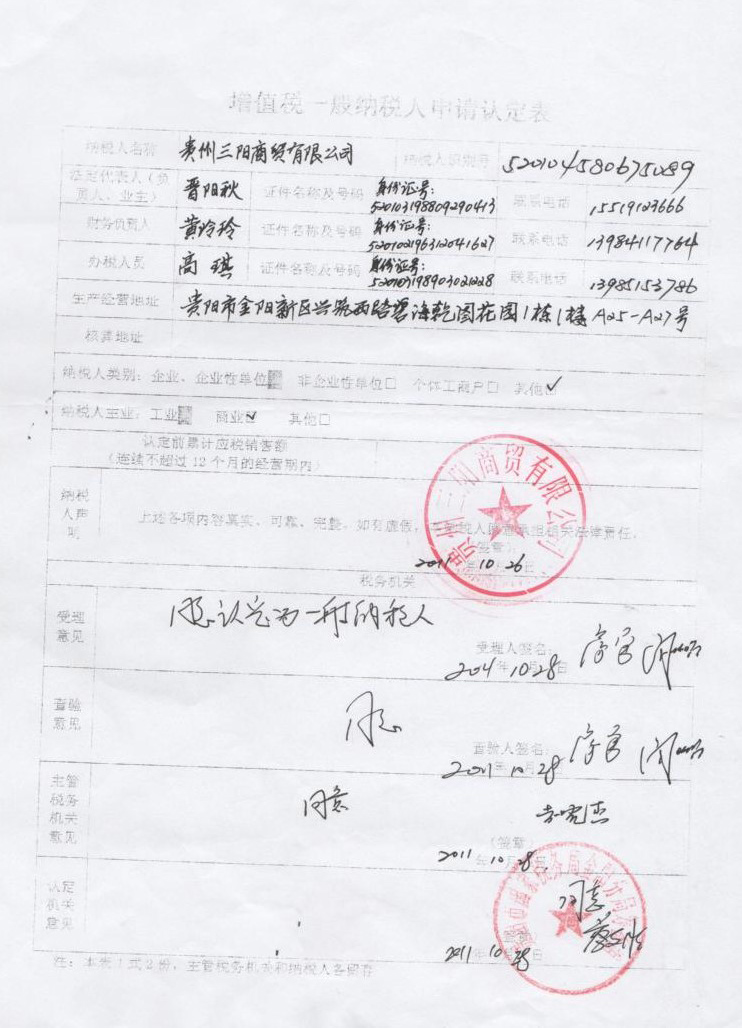 增值税一般纳税人申请认定表
纳税人名称 贵州三阳商贸有限公司 纳税人识别号 520104580675089
法定代表人（负责人、业主） 晋阳秋 证件名称及号码 身份证号：520103198809290413 联系电话 15519123666
财务负责人 黄玲玲 证件名称及号码 身份证号：520102196312041627 联系电话 13984117764
办税人员 高琪 证件名称及号码 身份证号：520103198903021228 联系电话 13985153786
生产经营地址 贵阳市金阳新区兴筑西路碧海乾图花园1栋1楼A25-A27号
核算地址
纳税人类别：企业、企业性单位 非企业性单位□ 个体工商户□ 其他□✓
纳税人主业：工业 商业□✓ 其他□
认定前累计应税销售额
（连续不超过12个月的经营期内）
纳税人声明
上述各项内容真实、可靠、完整。如有虚假，本纳税人愿意承担相关法律责任。
（签章）：
2011年10月26日
税务机关
受理意见
同意认定为一般纳税人
受理人签名：
2011年10月28日
查验意见
同意
查验人签名：
2011年10月28日
主管税务机关意见
同意
（签章）
2011年10月28日
认定机关意见
同意
2011年10月28日
注：本表1式2份，主管税务机关和纳税人各留存